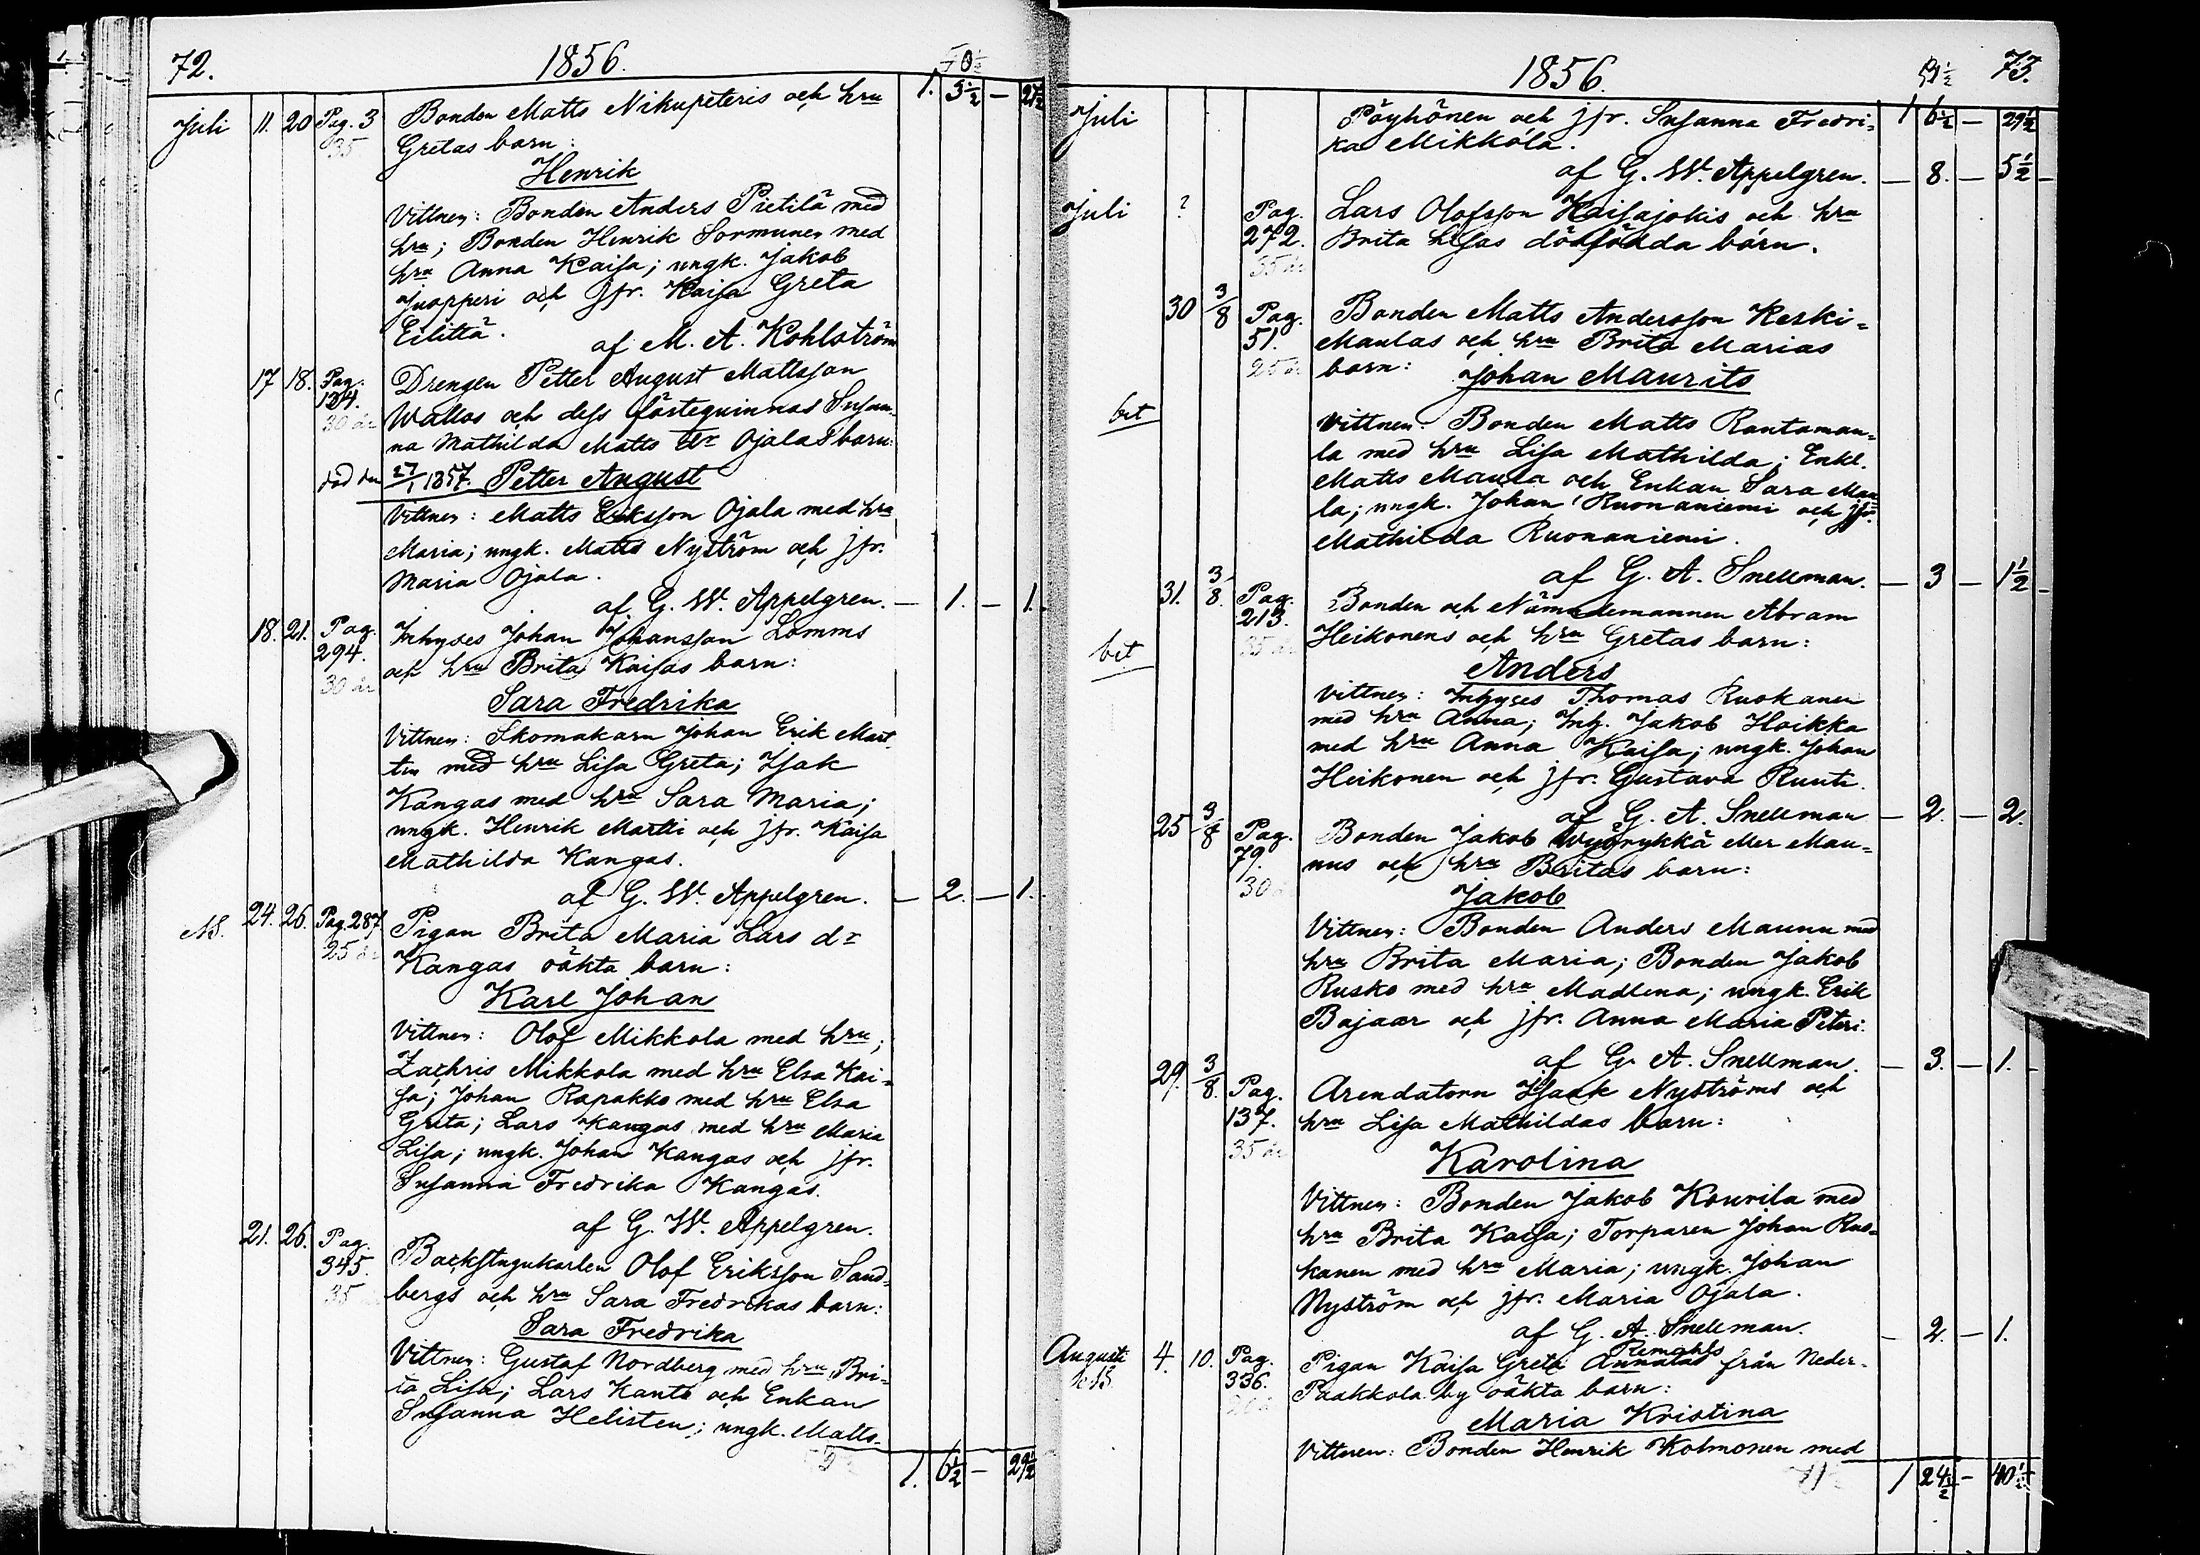 72. 1856. 50½
Juli 11. 20 Pag. 3 Bonden Matts Nikupeteris och hru 1. 5½ — 27½
35 Gretas barn:
Henrik
Vittnen: Bonden Anders Pietilä med
hru; Bonden Henrik Sormunen med
hru Anna Kaisa; ungk. Jakob
Juopperi och jfr. Kaisa Greta
Eilittä. af M. A. Kohlström
17 18. Pag. Drengen Petter August Mattsson
184. Wallos och dess fästeqvinnas Susan-
30 år na Mathilda Matts dr Ojalas barn:
död den 27/1 1857. Petter August
Vittnen: Matts Eriksson Ojala med hru
Maria; ungk. Matts Nyström och jfr.
Maria Ojala.
af G. W. Appelgren. — 1. — 1.
18. 21. Pag. Inhyses Johan Johansson Lomms
294. och hru Brita Kaisas barn:
30 år
Sara Fredrika
Vittnen: Skomakarn Johan Erik Mart-
tin med hru Lisa Greta; Isak
Kangas med hru Sara Maria;
ungk. Henrik Martti och jfr. Kaisa
Mathilda Kangas.
af G. W. Appelgren. — 2. — 1.
NB. 24. 26. Pag. 287 Pigan Brita Maria Lars dr
25 år Kangas oäkta barn:
Karl Johan
Vittnen: Olof Mikkola med hru;
Zachris Mikkola med hru Elsa Kai-
sa; Johan Rapakko med hru Elsa
Greta; Lars Kangas med hru Maria
Lisa; ungk. Johan Kangas och jfr.
Susanna Fredrika Kangas.
af G. W. Appelgren.
21. 26. Pag. Backstugukarlen Olof Eriksson Sand-
345. bergs och hru Sara Fredrikas barn:
35
Sara Fredrika
Vittnen: Gustaf Nordberg med hru Bri-
ta Lisa; Lars Kanto och Enkan
Susanna Helisten; ungk. Matts
1. 6½ — 29½
1856. 51½ 73.
Juli Pöyhönen och jfr. Susanna Fredri- 1 6½ — 29½
ka Mikkola.
af G. W. Appelgren. — 8. — 5½ —
Juli ? Pag. Lars Olofsson Kaisajokis och hru
272. Brita Lisas dödfödda barn.
35 år
30 3/8 Pag. Bonden Matts Andersson Keski-
51. Maulas och hru Brita Marias
25 år barn: Johan Maurits
bet Vittnen: Bonden Matts Rantamau-
la med hru Lisa Mathilda; Enkl.
Matts Maula och Enkan Sara Mau-
la; ungk. Johan Ruonaniemi och jfr.
Mathilda Ruonaniemi.
af G. A. Snellman. — 3 — 1½ —
31. 3/8. Pag. Bonden och Nämndemannen Abram
213. Heikonens och hru Gretas barn:
35 år
bet Anders
Vittnen: Inhyses Thomas Ruokanen
med hru Anna; Inh. Jakob Hoikka
med hru Anna Kaisa; ungk. Johan
Heikonen och jfr. Gustava Runti.
af G. A. Snellman — 2. — 2.
25 3/8 Pag. Bonden Jakob Wyörykkä eller Mau-
79. nus och hru Britas barn:
30
Jakob
Vittnen: Bonden Anders Maunu med
hru Brita Maria; Bonden Jakob
Rusko med hru Madlena; ungk. Erik
Bajaar och jfr. Anna Maria Peteri.
af G. A. Snellman. — 3. — 1. —
29. 3/8. Pag. Arendatorn Isaak Nyströms och
137. hru Lisa Mathildas barn:
35 år
Karolina
Vittnen: Bonden Jakob Kourila med
hru Brita Kaisa; Torparen Johan Ruo-
kanen med hru Maria; ungk. Johan
Nyström och jfr. Maria Ojala.
af G. A. Snellman. — 2. — 1.
Augusti 4. 10. Pag. Pigan Kaisa Greta Annalas från Neder-
336. Paakkola by oäkta barn:
Maria Kristina
Vittnen: Bonden Henrik Kolmonen med
1 24½ — 40½